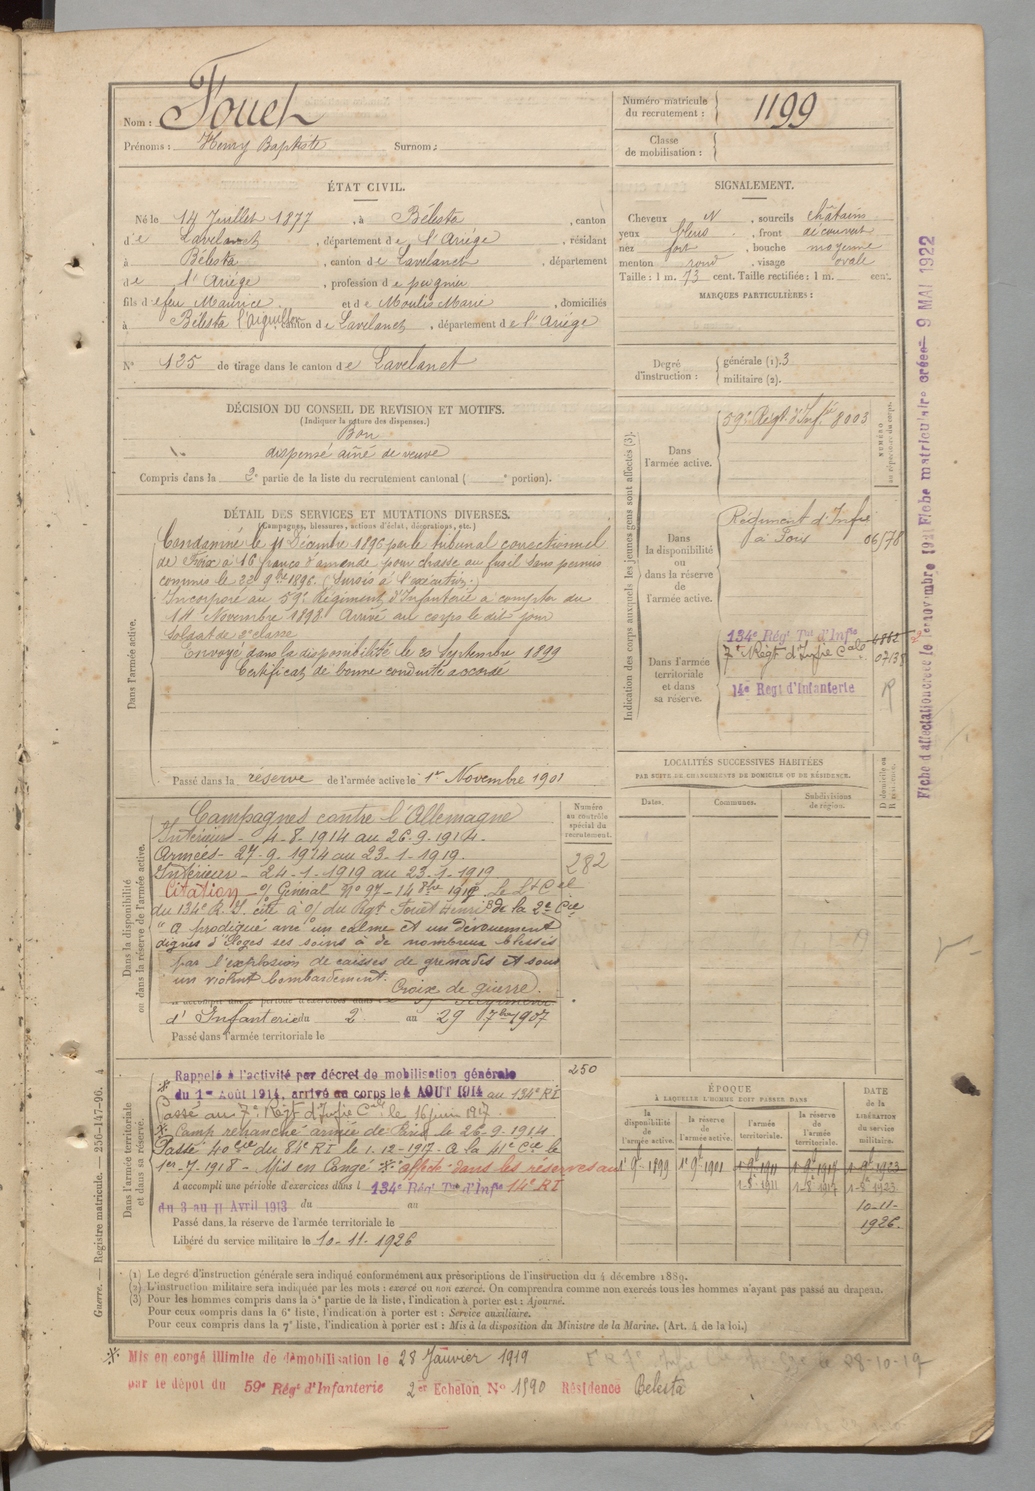 Nom : Fouet
Prénoms : Henry Baptiste Surnom :
Numéro matricule du recrutement : 1199
Classe de mobilisation :
ÉTAT CIVIL.
Né le 14 Juillet 1877, à Bélesta, canton
d e Lavelanet, département d e l'Ariége, résidant
à Bélesta, canton d e Lavelanet, département
d e l'Ariége, profession d e peignier
fils d e feu Maurice et d e Moulis Marie, domiciliés
à Bélesta l'Aiguillon, canton d e Lavelanet, département d e l'Ariége
N° 125 de tirage dans le canton d e Lavelanet
SIGNALEMENT.
Cheveux N, sourcils châtains
yeux bleus, front découvert
nez fort, bouche moyenne
menton rond, visage ovale
Taille : 1 m. 73 cent. Taille rectifiée : 1 m. cent.
MARQUES PARTICULIÈRES :
Degré d'instruction : générale (1). 3
militaire (2).
DÉCISION DU CONSEIL DE REVISION ET MOTIFS.
(Indiquer la nature des dispenses.)
Bon
dispensé aîné de veuve
Compris dans la 2e partie de la liste du recrutement cantonal ( e portion).
DÉTAIL DES SERVICES ET MUTATIONS DIVERSES.
(Campagnes, blessures, actions d'éclat, décorations, etc.)
Dans l'armée active.
Condamné le 11 Décembre 1896 par le tribunal correctionnel
de Foix à 16 francs d'amende pour chasse au fusil sans permis
commis le 22 9bre 1896. (Sursis à l'exécution.)
Incorporé au 59e Régiment d'Infanterie à compter du
14 Novembre 1898. Arrivé au corps le dit jour
Soldat de 2e classe
Envoyé dans la disponibilité le 20 Septembre 1899
Certificat de bonne conduite accordé
Passé dans la réserve de l'armée active le 1er Novembre 1901
Indication des corps auxquels les jeunes gens sont affectés (3).
NUMÉRO au répertoire du corps.
Dans l'armée active.
59e Régt d'Inf. 8003
Dans la disponibilité ou dans la réserve de l'armée active.
Régiment d'Infie
à Foix 06578
Dans l'armée territoriale et dans sa réserve.
134e Régt Tal d'Infie
7e Régt d'Infie Cale
14e Regt d'Infanterie R
LOCALITÉS SUCCESSIVES HABITÉES
PAR SUITE DE CHANGEMENTS DE DOMICILE OU DE RÉSIDENCE.
Dates. Communes. Subdivisions de région. D domicile ou R résidence.
Dans la disponibilité ou dans la réserve de l'armée active.
Numéro au contrôle spécial du recrutement.
282
Campagnes contre l'Allemagne
Intérieur - 4-8-1914 au 26-9-1914.
Armées - 27-9-1914 au 23-1-1919.
Intérieur - 24-1-1919 au 23-1-1919
Citation - o/ Général No 97 - Le Lt Cel
du 134e R.I. cite à o/ du Rgt Fouet Henri B de la 2e Cie
" A prodigué avec un calme et un dévouement
dignes d'éloges ses soins à de nombreux blessés
par l'explosion de caisses de grenades et sous
un violent bombardement. Croix de guerre.
d'Infanterie du 2 au 29 7bre 1907
Passé dans l'armée territoriale le
Dans l'armée territoriale et dans sa réserve.
250
Rappelé à l'activité par décret de mobilisation générale
du 1er Août 1914, arrivé au corps le 4 AOUT 1914 au 134e RI
Passé au 7e Régt d'Infie Cale le 16 juin 1917.
Passé 40 au 81e RI le 1.12-1917. A la 41e Cie le
1er-7-1918 - Mis en Congé ※ affecté dans les réserves au
14e RI
A accompli une période d'exercices dans l 134e Régt Tal d'Infie
du 3 au 11 Avril 1913 du au
Passé dans la réserve de l'armée territoriale le
Libéré du service militaire le 10-11-1926
ÉPOQUE
À LAQUELLE L'HOMME DOIT PASSER DANS
la disponibilité de l'armée active. la réserve de l'armée active. l'armée territoriale. la réserve de l'armée territoriale. DATE de la LIBÉRATION du service militaire.
1er 9bre 1899 1er 9bre 1901 1-9bre 1911 1-9bre 1917 1-9bre 1923
1-8bre 1911 1-8bre 1917 1-8bre 1923
10-11-
1926.
(1) Le degré d'instruction générale sera indiqué conformément aux prescriptions de l'instruction du 4 décembre 1889.
(2) L'instruction militaire sera indiquée par les mots : exercé ou non exercé. On comprendra comme non exercés tous les hommes n'ayant pas passé au drapeau.
(3) Pour les hommes compris dans la 5e partie de la liste, l'indication à porter est : Ajourné.
Pour ceux compris dans la 6e liste, l'indication à porter est : Service auxiliaire.
Pour ceux compris dans la 7e liste, l'indication à porter est : Mis à la disposition du Ministre de la Marine. (Art. 4 de la loi.)
※ Mis en congé illimité de démobilisation le 28 Janvier 1919
par le dépôt du 59e Régt d'Infanterie 2e Echelon No 1590 Résidence Belesta
28-10-17
Guerre. — Registre matricule. — 256-147-96. 4
Fiche matriculaire créée 9 MAI 1922